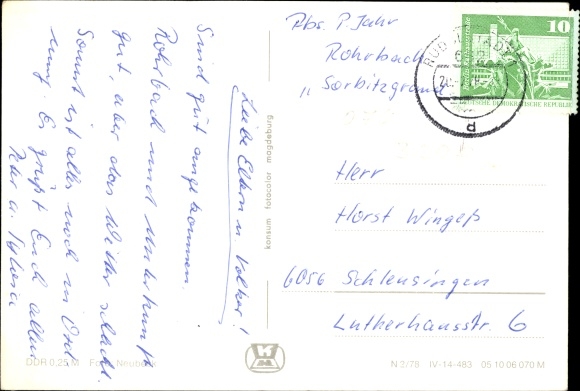 Liebe Eltern u. Volker!
Sind gut angekommen.
Rohrbach und Unterkunft
gut, aber das Wetter schlecht.
Sonst ist alles noch in Ord
nung. Es grüßt Euch allen
Petr u. Sylvia
Abs. P. Jahr
Rohrbach
"Sorbitzgrund
10
DEUTSCHE DEMOKRATISCHE REPUBLIK
Herr
Horst Wingeß
6056 Schleusingen
Lutherhausstr. 6
konsum fotocolor magdeburg
DDR 0,25 M
N 2/78 IV-14-483 05 10 06 070 M